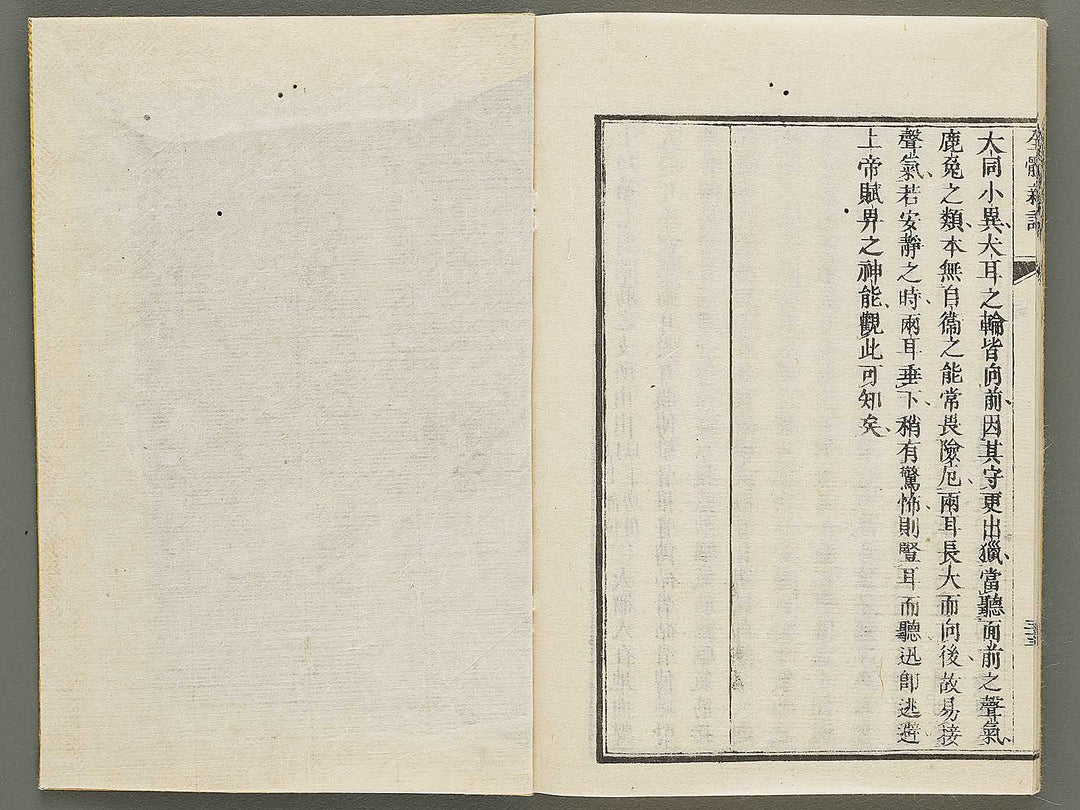 全體新論
三十三
大同小異、犬耳之輪、皆向前、因其守更出獵、當聽面前之聲氣、
鹿兔之類、本無自衞之能、常畏險厄、兩耳長大而向後、故易接
聲氣、若安靜之時、兩耳垂下、稍有驚怖、則豎耳而聽、迅卽逃避、
上帝賦畀之神能、觀此可知矣、